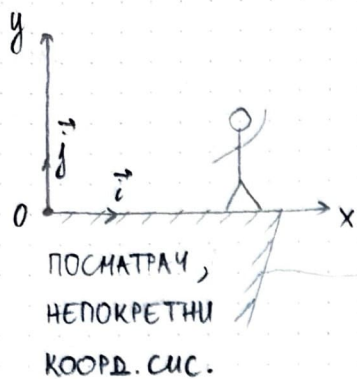 y
j
i
O
x
ПОСМАТРАЧ,
НЕПОКРЕТНИ
КООРД. СИС.